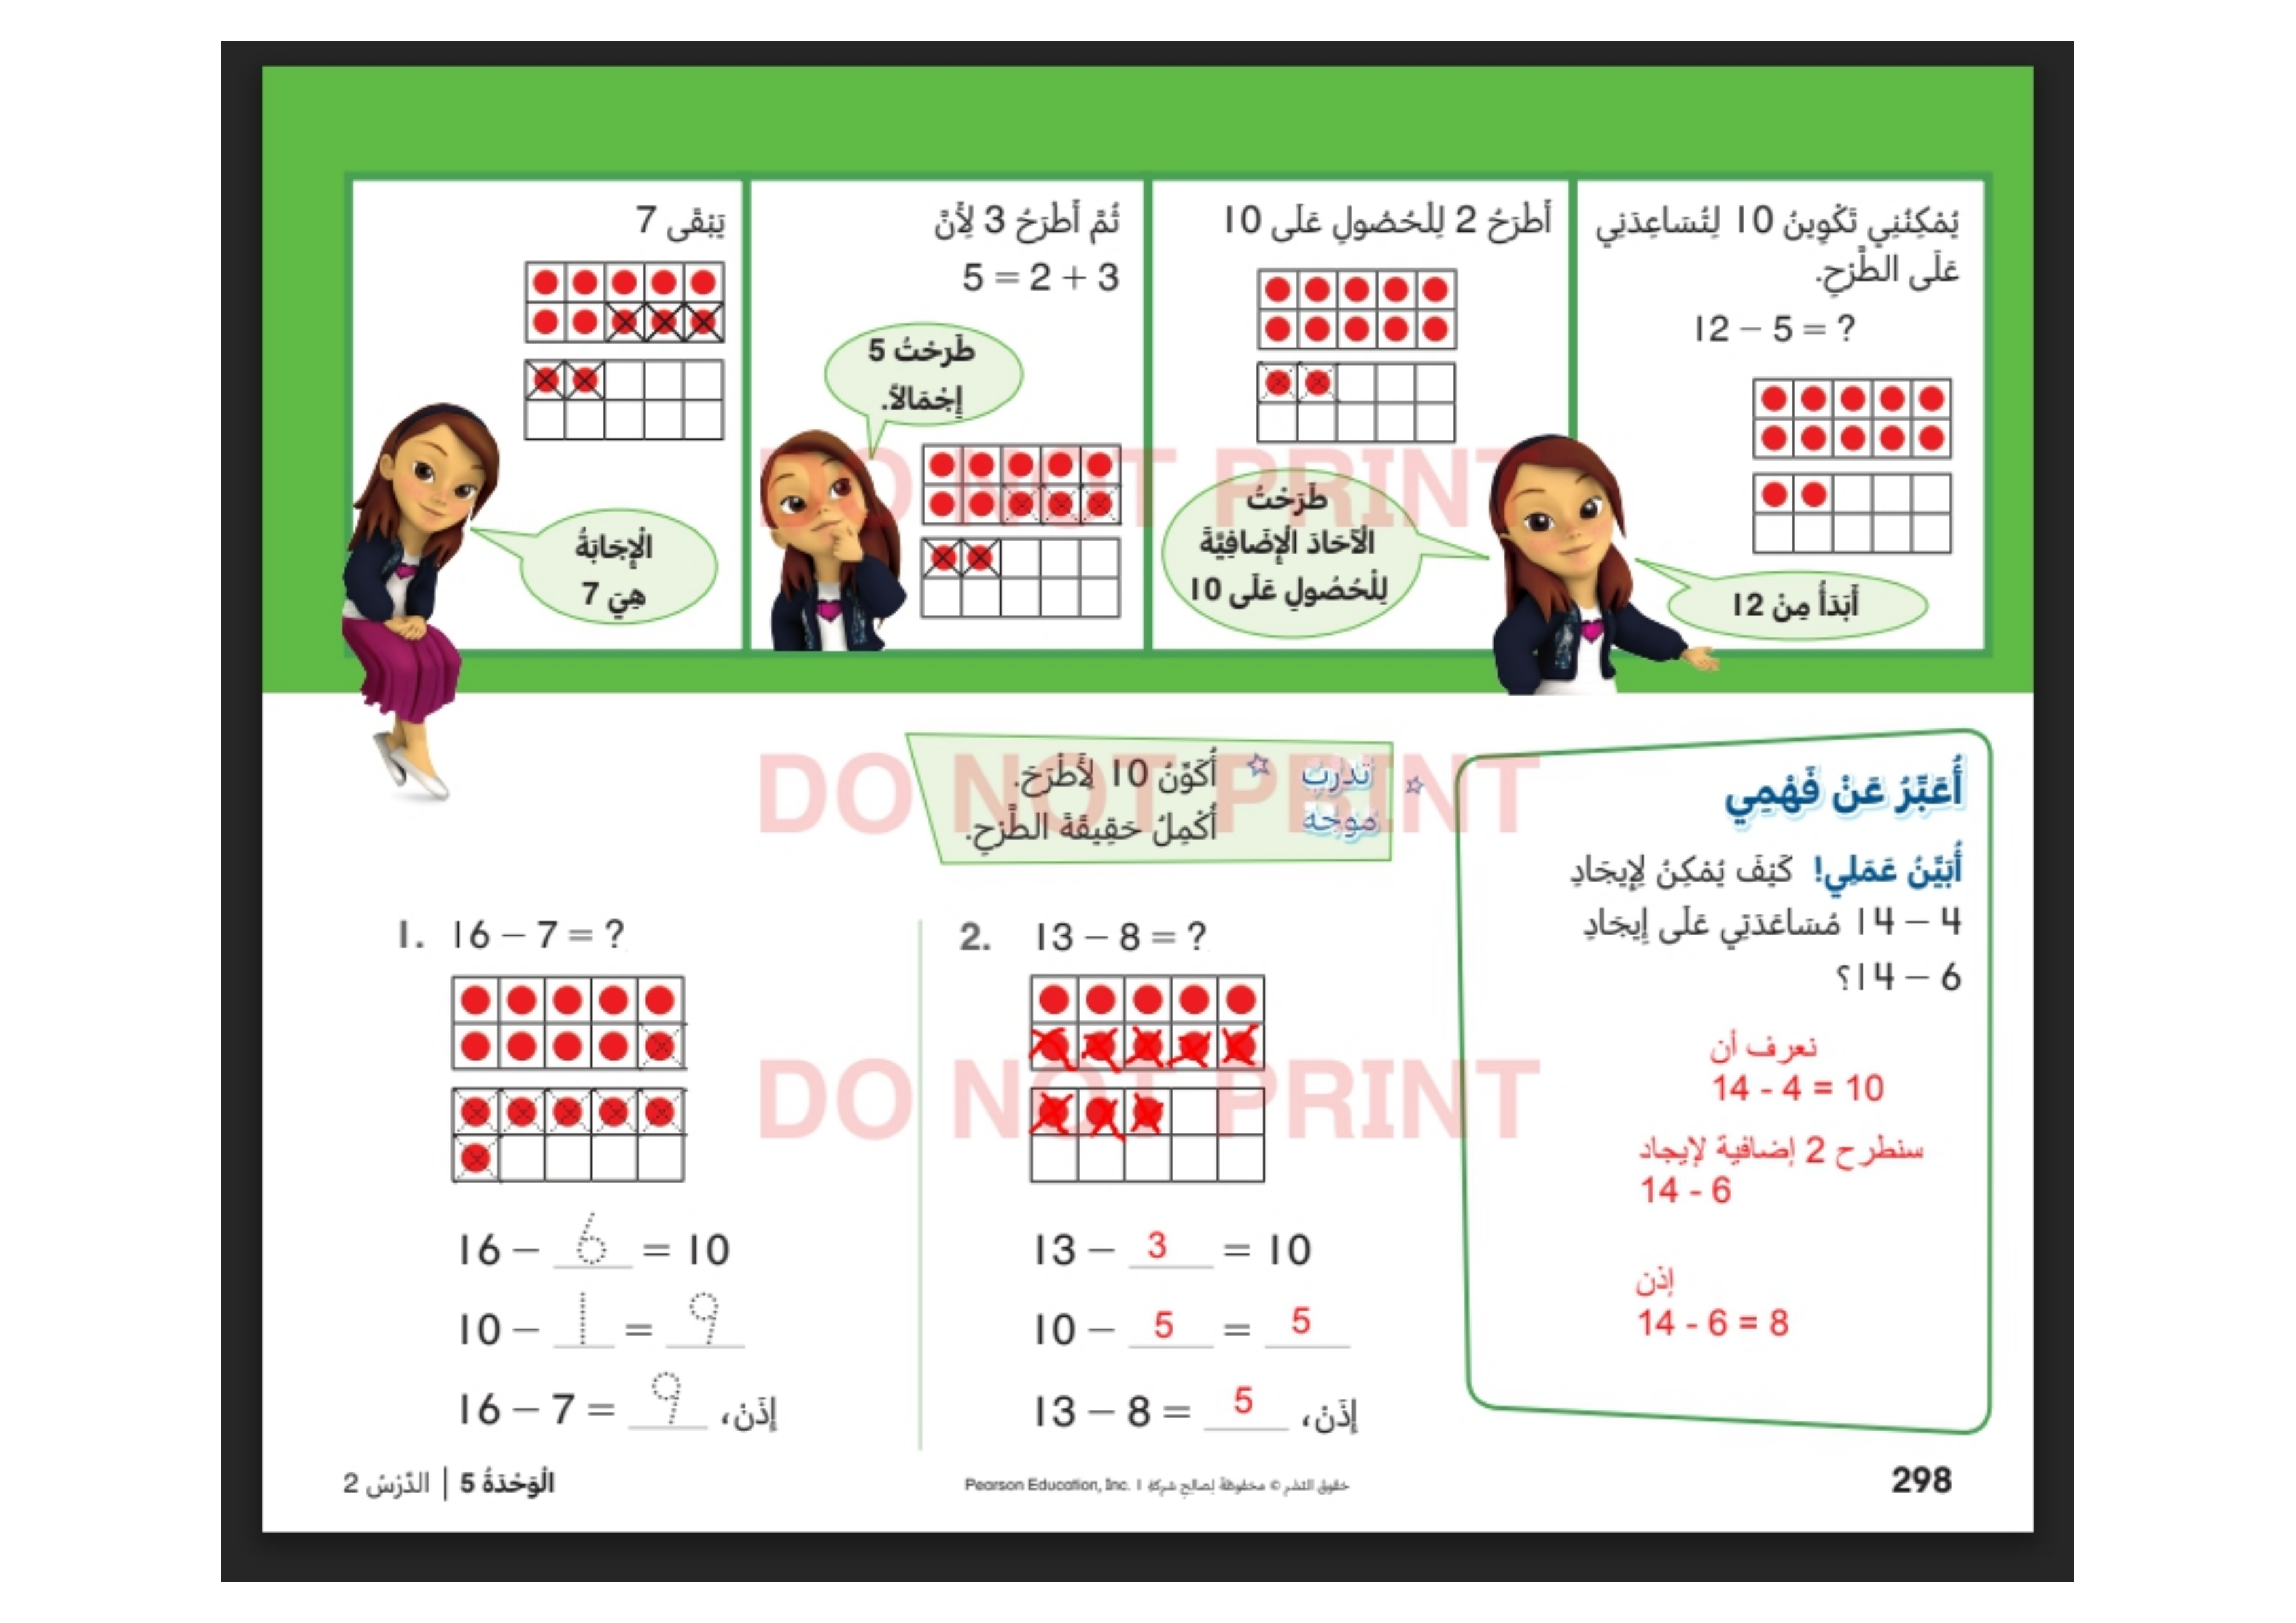 يُمْكِنُنِي تَكْوِينُ 10 لِتُسَاعِدَنِي
عَلَى الطَّرْحِ.
12 − 5 = ?
أَبَدَأُ مِنْ 12
أَطْرَحُ 2 لِلْحُصُولِ عَلَى 10
طَرَحْتُ
الْآحَادَ الْإِضَافِيَّةَ
لِلْحُصُولِ عَلَى 10
ثُمَّ أَطْرَحُ 3 لِأَنَّ
5 = 2 + 3
طَرَحْتُ 5
إِجْمَالاً.
يَبْقَى 7
الْإِجَابَةُ
هِيَ 7
DO NOT PRINT
أُعَبِّرُ عَنْ فَهْمِي
أُبَيِّنُ عَمَلِي! كَيْفَ يُمْكِنُ لِإِيجَادِ
14 − 4 مُسَاعَدَتِي عَلَى إِيجَادِ
14 − 6؟
نعرف أن
14 - 4 = 10
سنطرح 2 إضافية لإيجاد
14 - 6
إذن
14 - 6 = 8
☆ تدارب ☆
موجه
أُكَوِّنُ 10 لِأَطْرَحَ.
أُكْمِلُ حَقِيقَةَ الطَّرْحِ.
DO NOT PRINT
1. 16 − 7 = ?
16 − 6 = 10
10 − 1 = 9
إِذَنْ، 16 − 7 = 9
2. 13 − 8 = ?
DO NOT PRINT
13 − 3 = 10
10 − 5 = 5
إِذَنْ، 13 − 8 = 5
298
حقوق النشر © محفوظة لصالح شركة Pearson Education, Inc. 1
الْوَحْدَةُ 5 | الدَّرْسُ 2